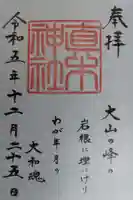 奉拝
大山の峰の
岩根に埋にけり
わが年月の
大和魂
真木神社
令和五年十二月二十五日